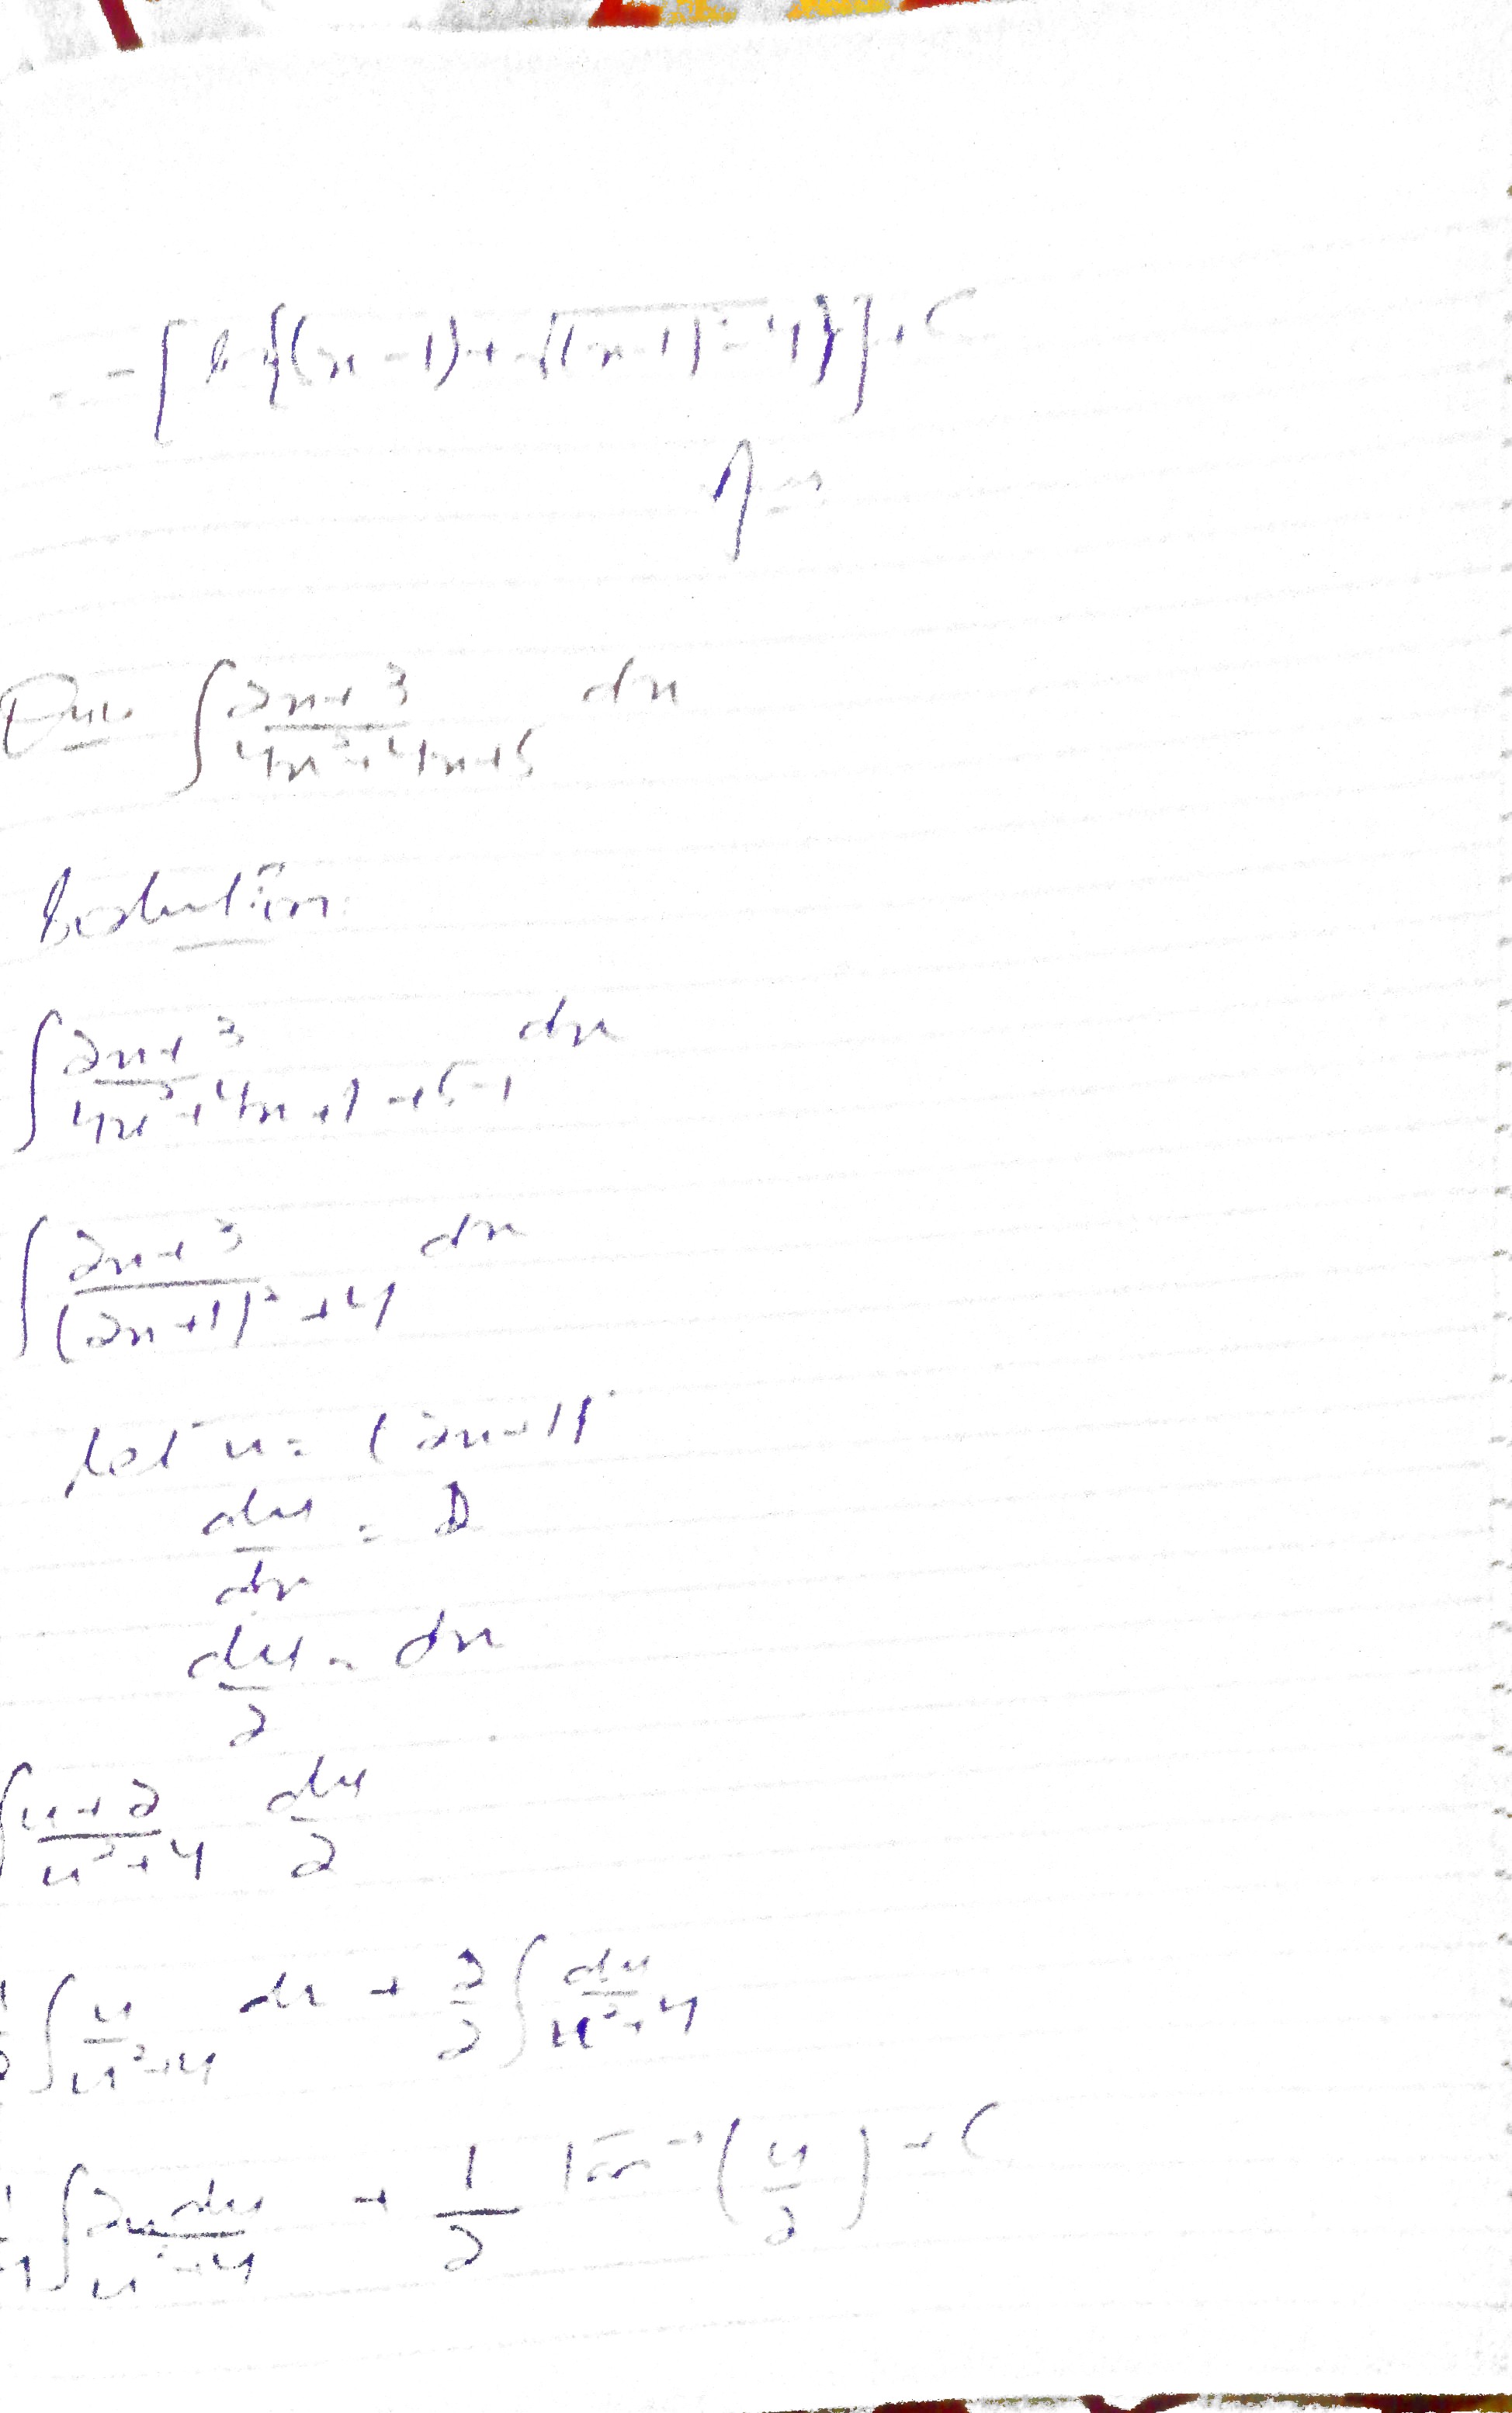 = -[ln{(x-1)+√((x-1)²-4)}]+C
Ans
Ques ∫ (2x+3)/(4x²+4x+5) dx
Solution
∫ (2x+3)/(4x²+4x+1+5-1) dx
∫ (2x+3)/((2x+1)²+4) dx
Let u = (2x+1)
du/dx = 2
du/2 = dx
∫ (u+2)/(u²+4) du/2
∫ u/(u²+4) du + 2/2 ∫ du/(u²+4)
∫ 2u du/(u²+4) + 1/2 Tan⁻¹(u/2) + C